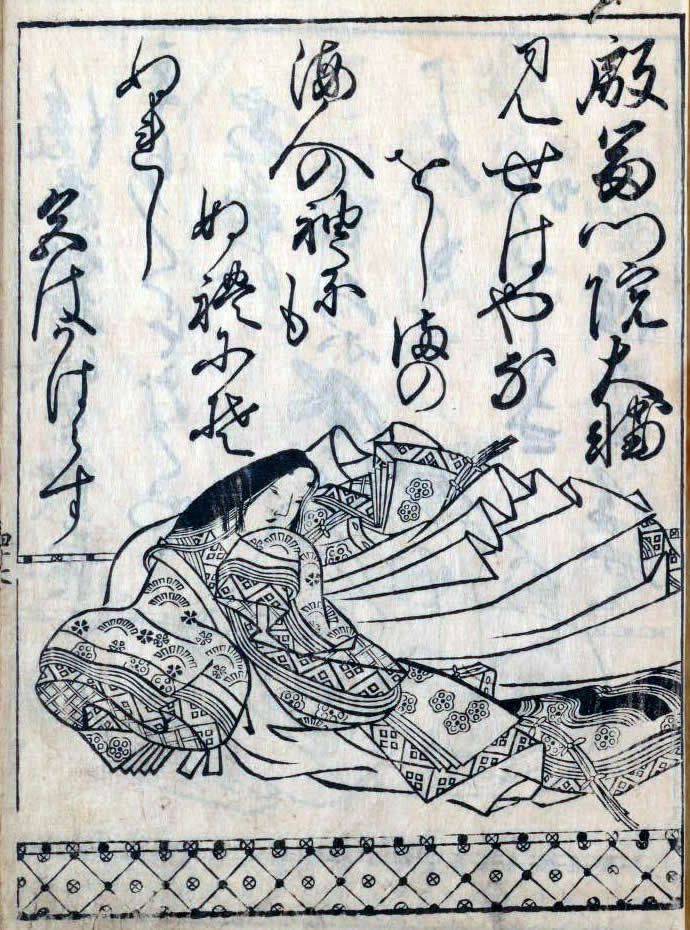 殷冨門院大輔
見せはやな
をしまの
海人の袖たにも
ぬ禮にそ
ぬれし
色はかはらす